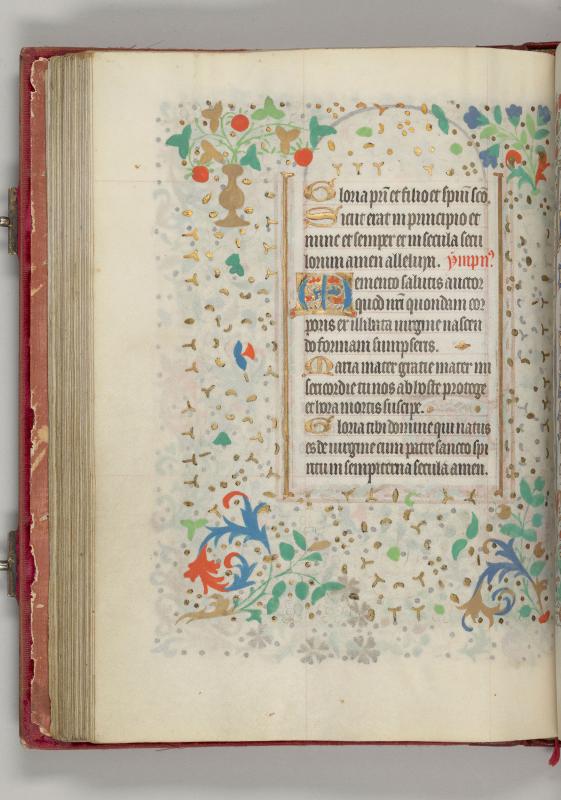 Gloria pri et filio et spiui sco.
Sicut erat in principio et
nunc et semper et in secula secu
lorum amen alleluya. ympn9.
Memento salutis auctor
quod nri quondam cor
poris ex illibata uirgine nascen
do formam sumpseris.
Maria mater gratie mater mi
sericordie tu nos ab hoste protege
et hora mortis suscipe.
Gloria tibi domine qui natus
es de uirgine cum patre sancto spi
ritu in sempiterna secula amen.